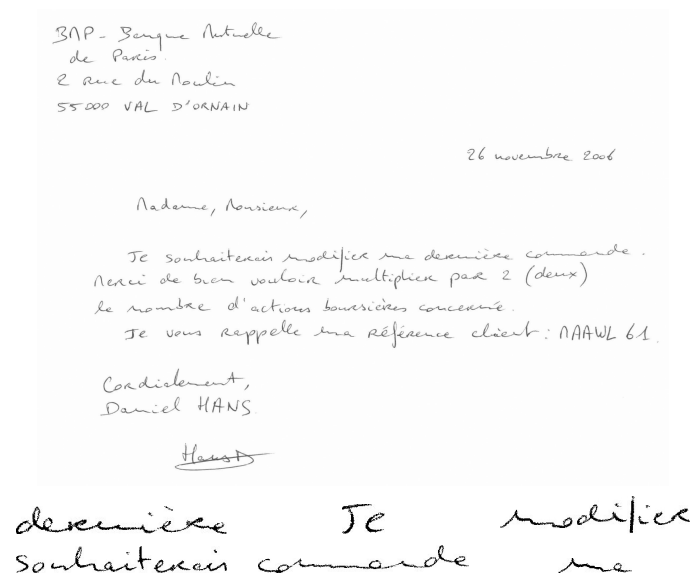 BMP - Banque Mutuelle
de Paris.
2 Rue du Moulin
55000 VAL D'ORNAIN
26 novembre 2006
Madame, Monsieur,
Je souhaiterais modifier ma dernière commande.
Merci de bien vouloir multiplier par 2 (deux)
le nombre d'actions boursières concerné.
Je vous rappelle ma référence client : MAAWL 61.
Cordialement,
Daniel HANS
HansD
dernière Je modifier
souhaiterais commande ma